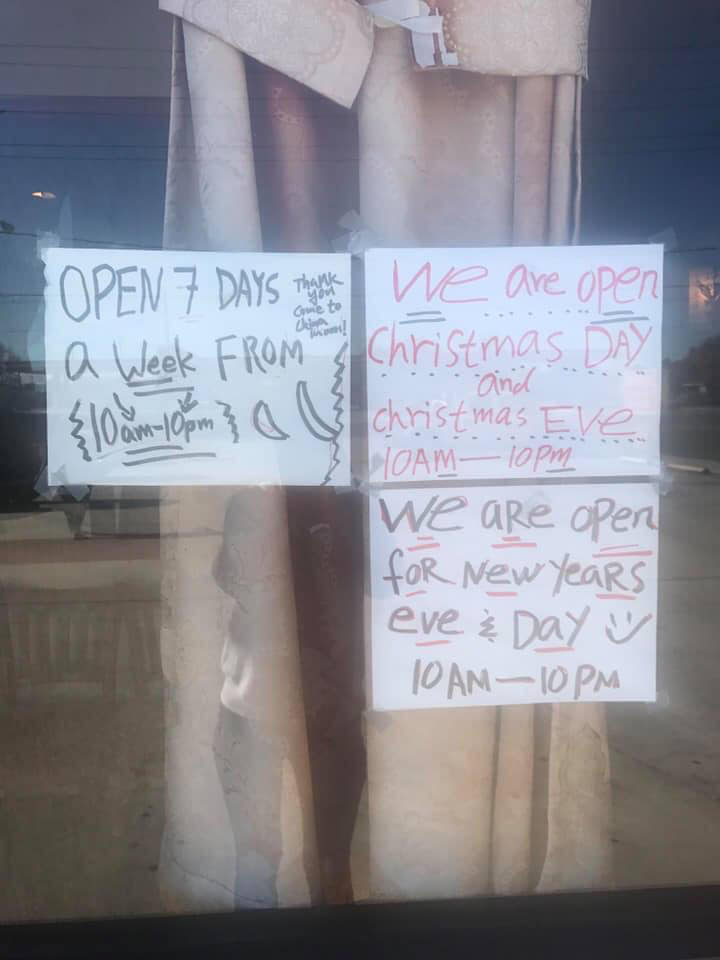 OPEN 7 DAYS
a Week FROM
10am-10pm
Thank
you
Come to
China
We are open
christmas DAY
and
christmas EVe
10AM—10Pm
We aRe open
foR New YeaRS
eve & Day
10 AM—10 PM